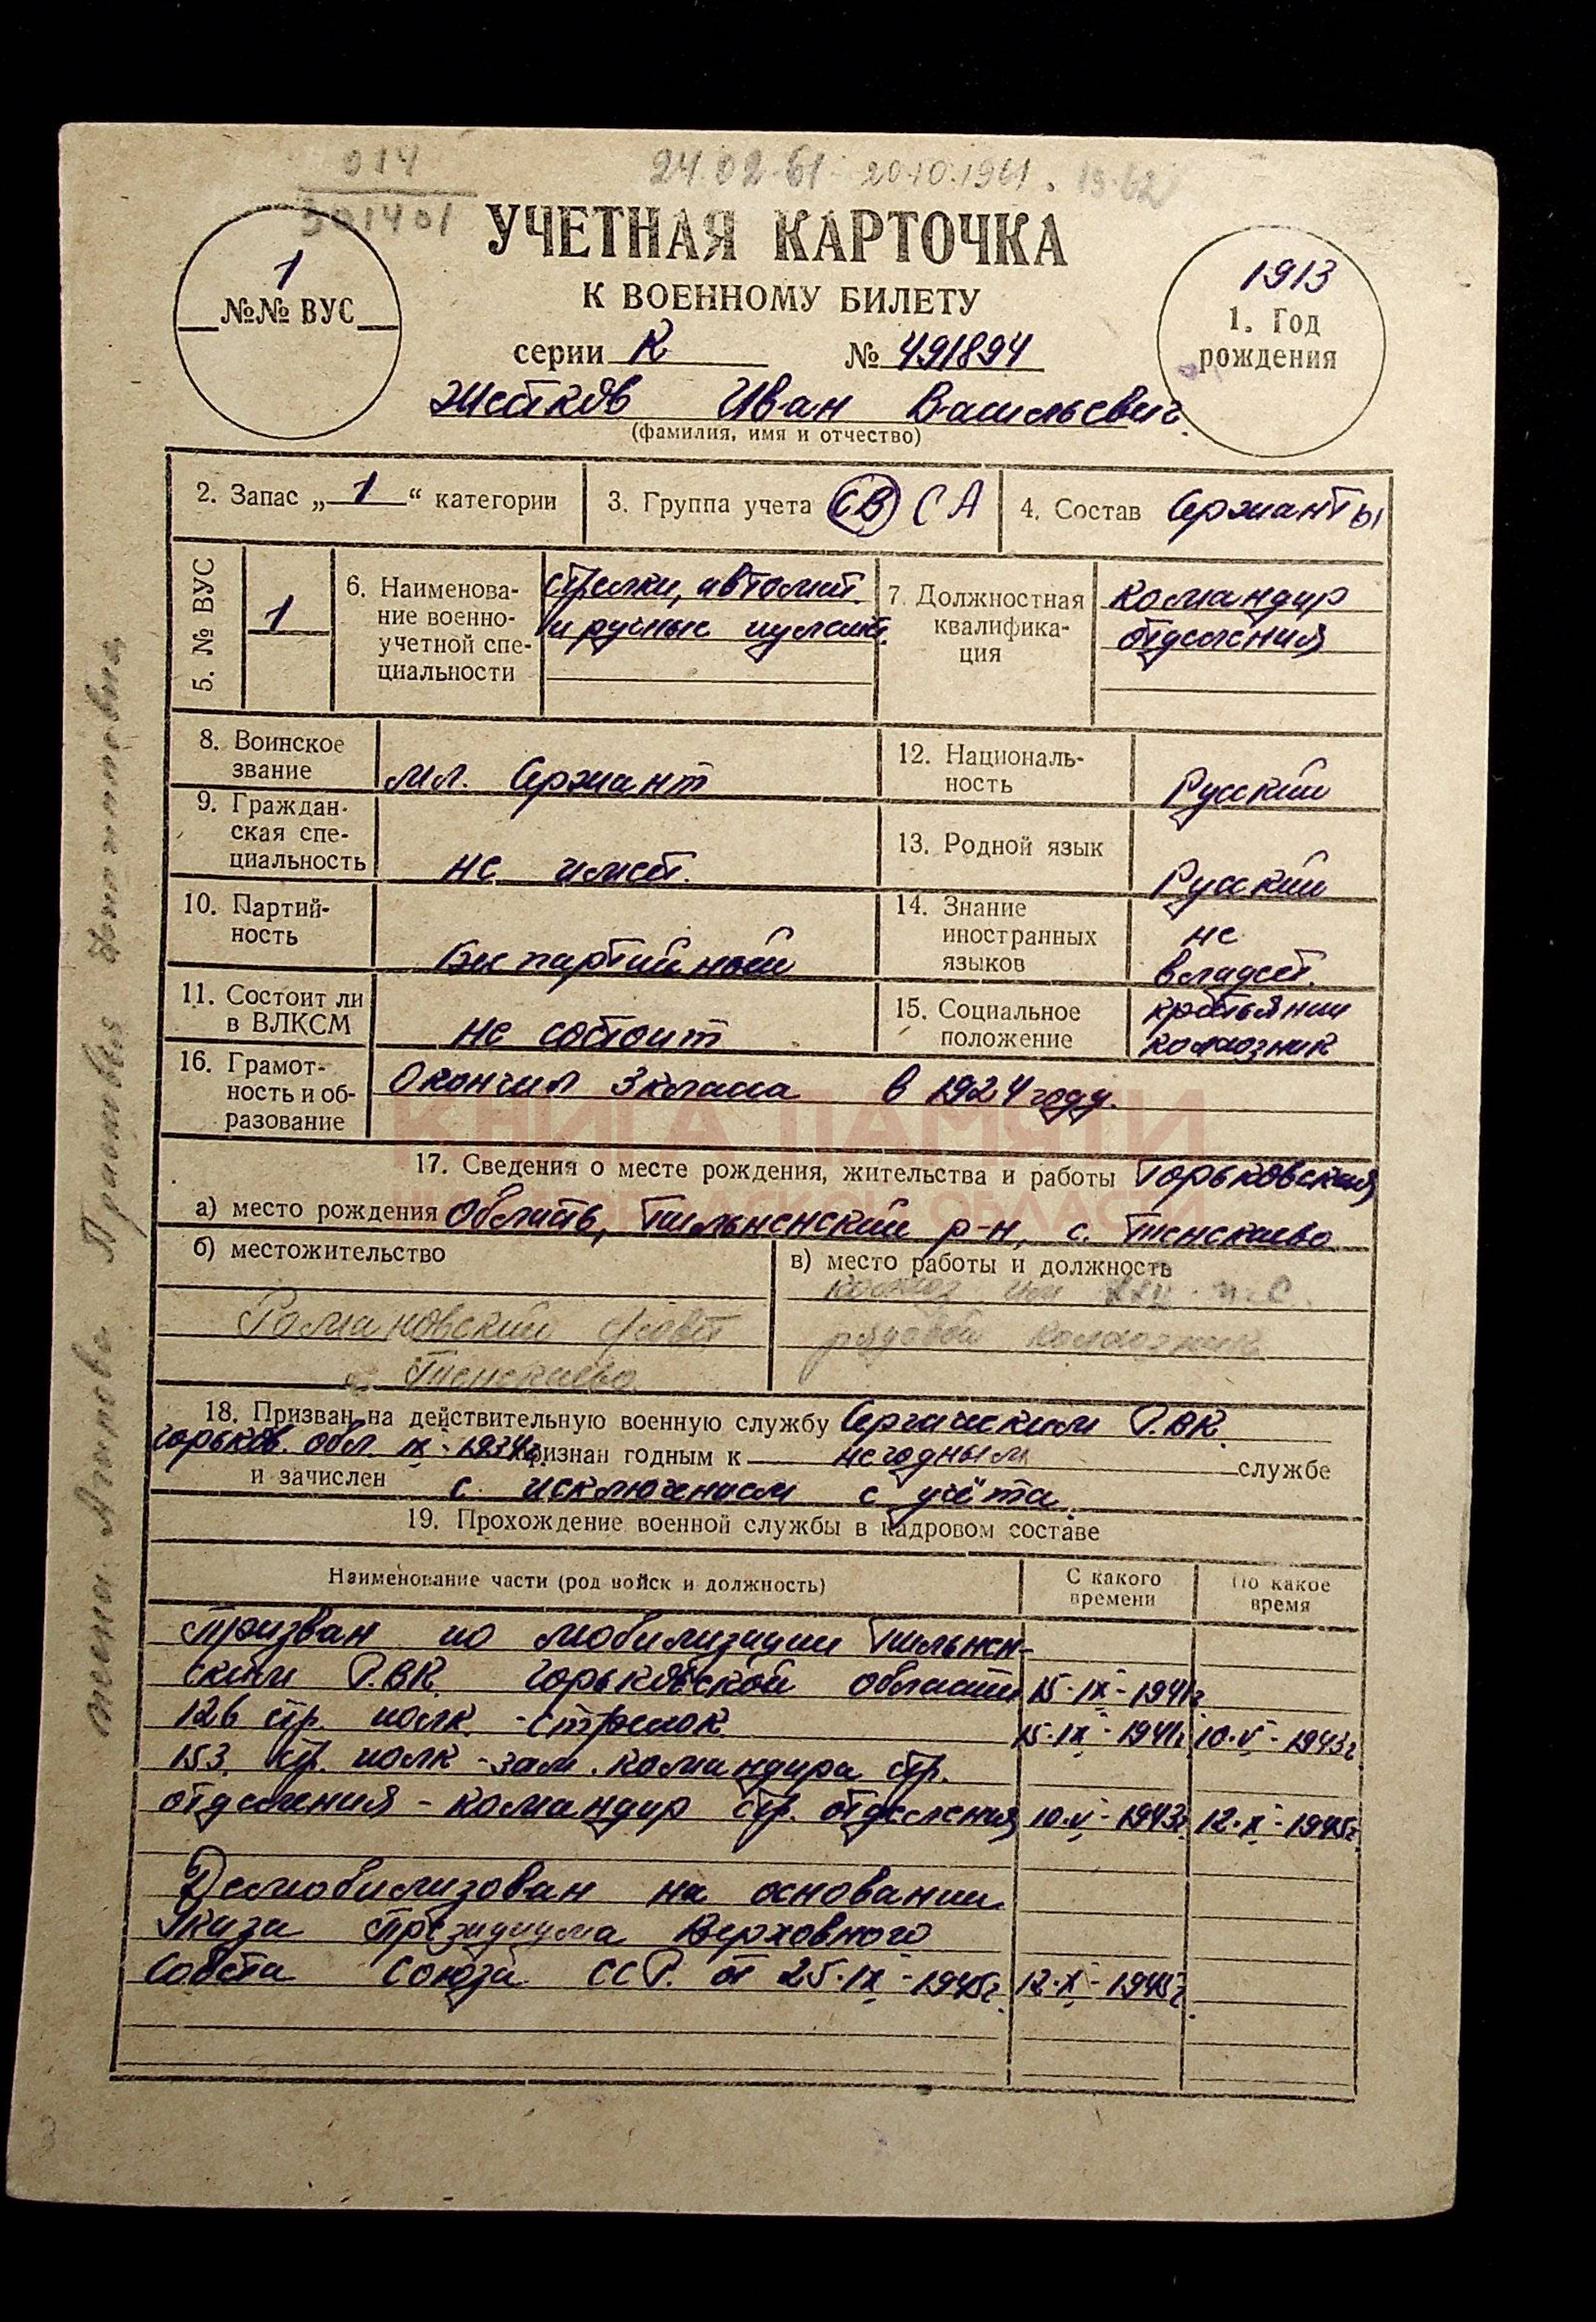 014
301401
24.02.61 20.10.1961.
УЧЕТНАЯ КАРТОЧКА
К ВОЕННОМУ БИЛЕТУ
1
№№ ВУС
1913
1. Год
рождения
серии К № 491894
Жетков Иван Васильевич
(фамилия, имя и отчество)
2. Запас „ 1 “ категории
3. Группа учета СВ СА
4. Состав Сержанты
5. № ВУС
1
6. Наименова-
ние военно-
учетной спе-
циальности
стрелки, автомат.
и ручные пулем.
7. Должностная
квалифика-
ция
командир
отделения
8. Воинское
звание
мл. Сержант
9. Граждан-
ская спе-
циальность
не имеет.
10. Партий-
ность
Беспартийный
11. Состоит ли
в ВЛКСМ
не состоит
12. Националь-
ность
Русский
13. Родной язык
Русский
14. Знание
иностранных
языков
не
владеет.
15. Социальное
положение
крестьянин
колхозник
16. Грамот-
ность и об-
разование
Окончил 3 класса в 1924 году.
КНИГА ПАМЯТИ
НИЖЕГОРОДСКОЙ ОБЛАСТИ
17. Сведения о месте рождения, жительства и работы Горьковская
а) место рождения Область, Пильненский р-н, с. Тенекаево
б) местожительство
Романовский с/совет
с. Тенекаево
в) место работы и должность
колхоз им XXII п.с.
рядовой колхозник
18. Призван на действительную военную службу Сергачским Р.ВК.
Горьков. обл. IX - 1934г. признан годным к негодным службе
и зачислен с исключением с учёта.
19. Прохождение военной службы в кадровом составе
Наименование части (род войск и должность)
С какого
времени
По какое
время
Призван по мобилизации Пильнен-
ским Р.ВК. Горьковской области 15-IX-1941г
126 стр. полк - Стрелок 15-IX-1941г. 10.V-1943г.
153. стр. полк - зам. командира стр.
отделения - командир стр. отделения 10.V-1943г. 12.X-1945г.
Демобилизован на основании
Указа Президиума Верховного
Совета Союза ССР. от 25.IX-1945г. 12.X-1945г.
жена Прасковья